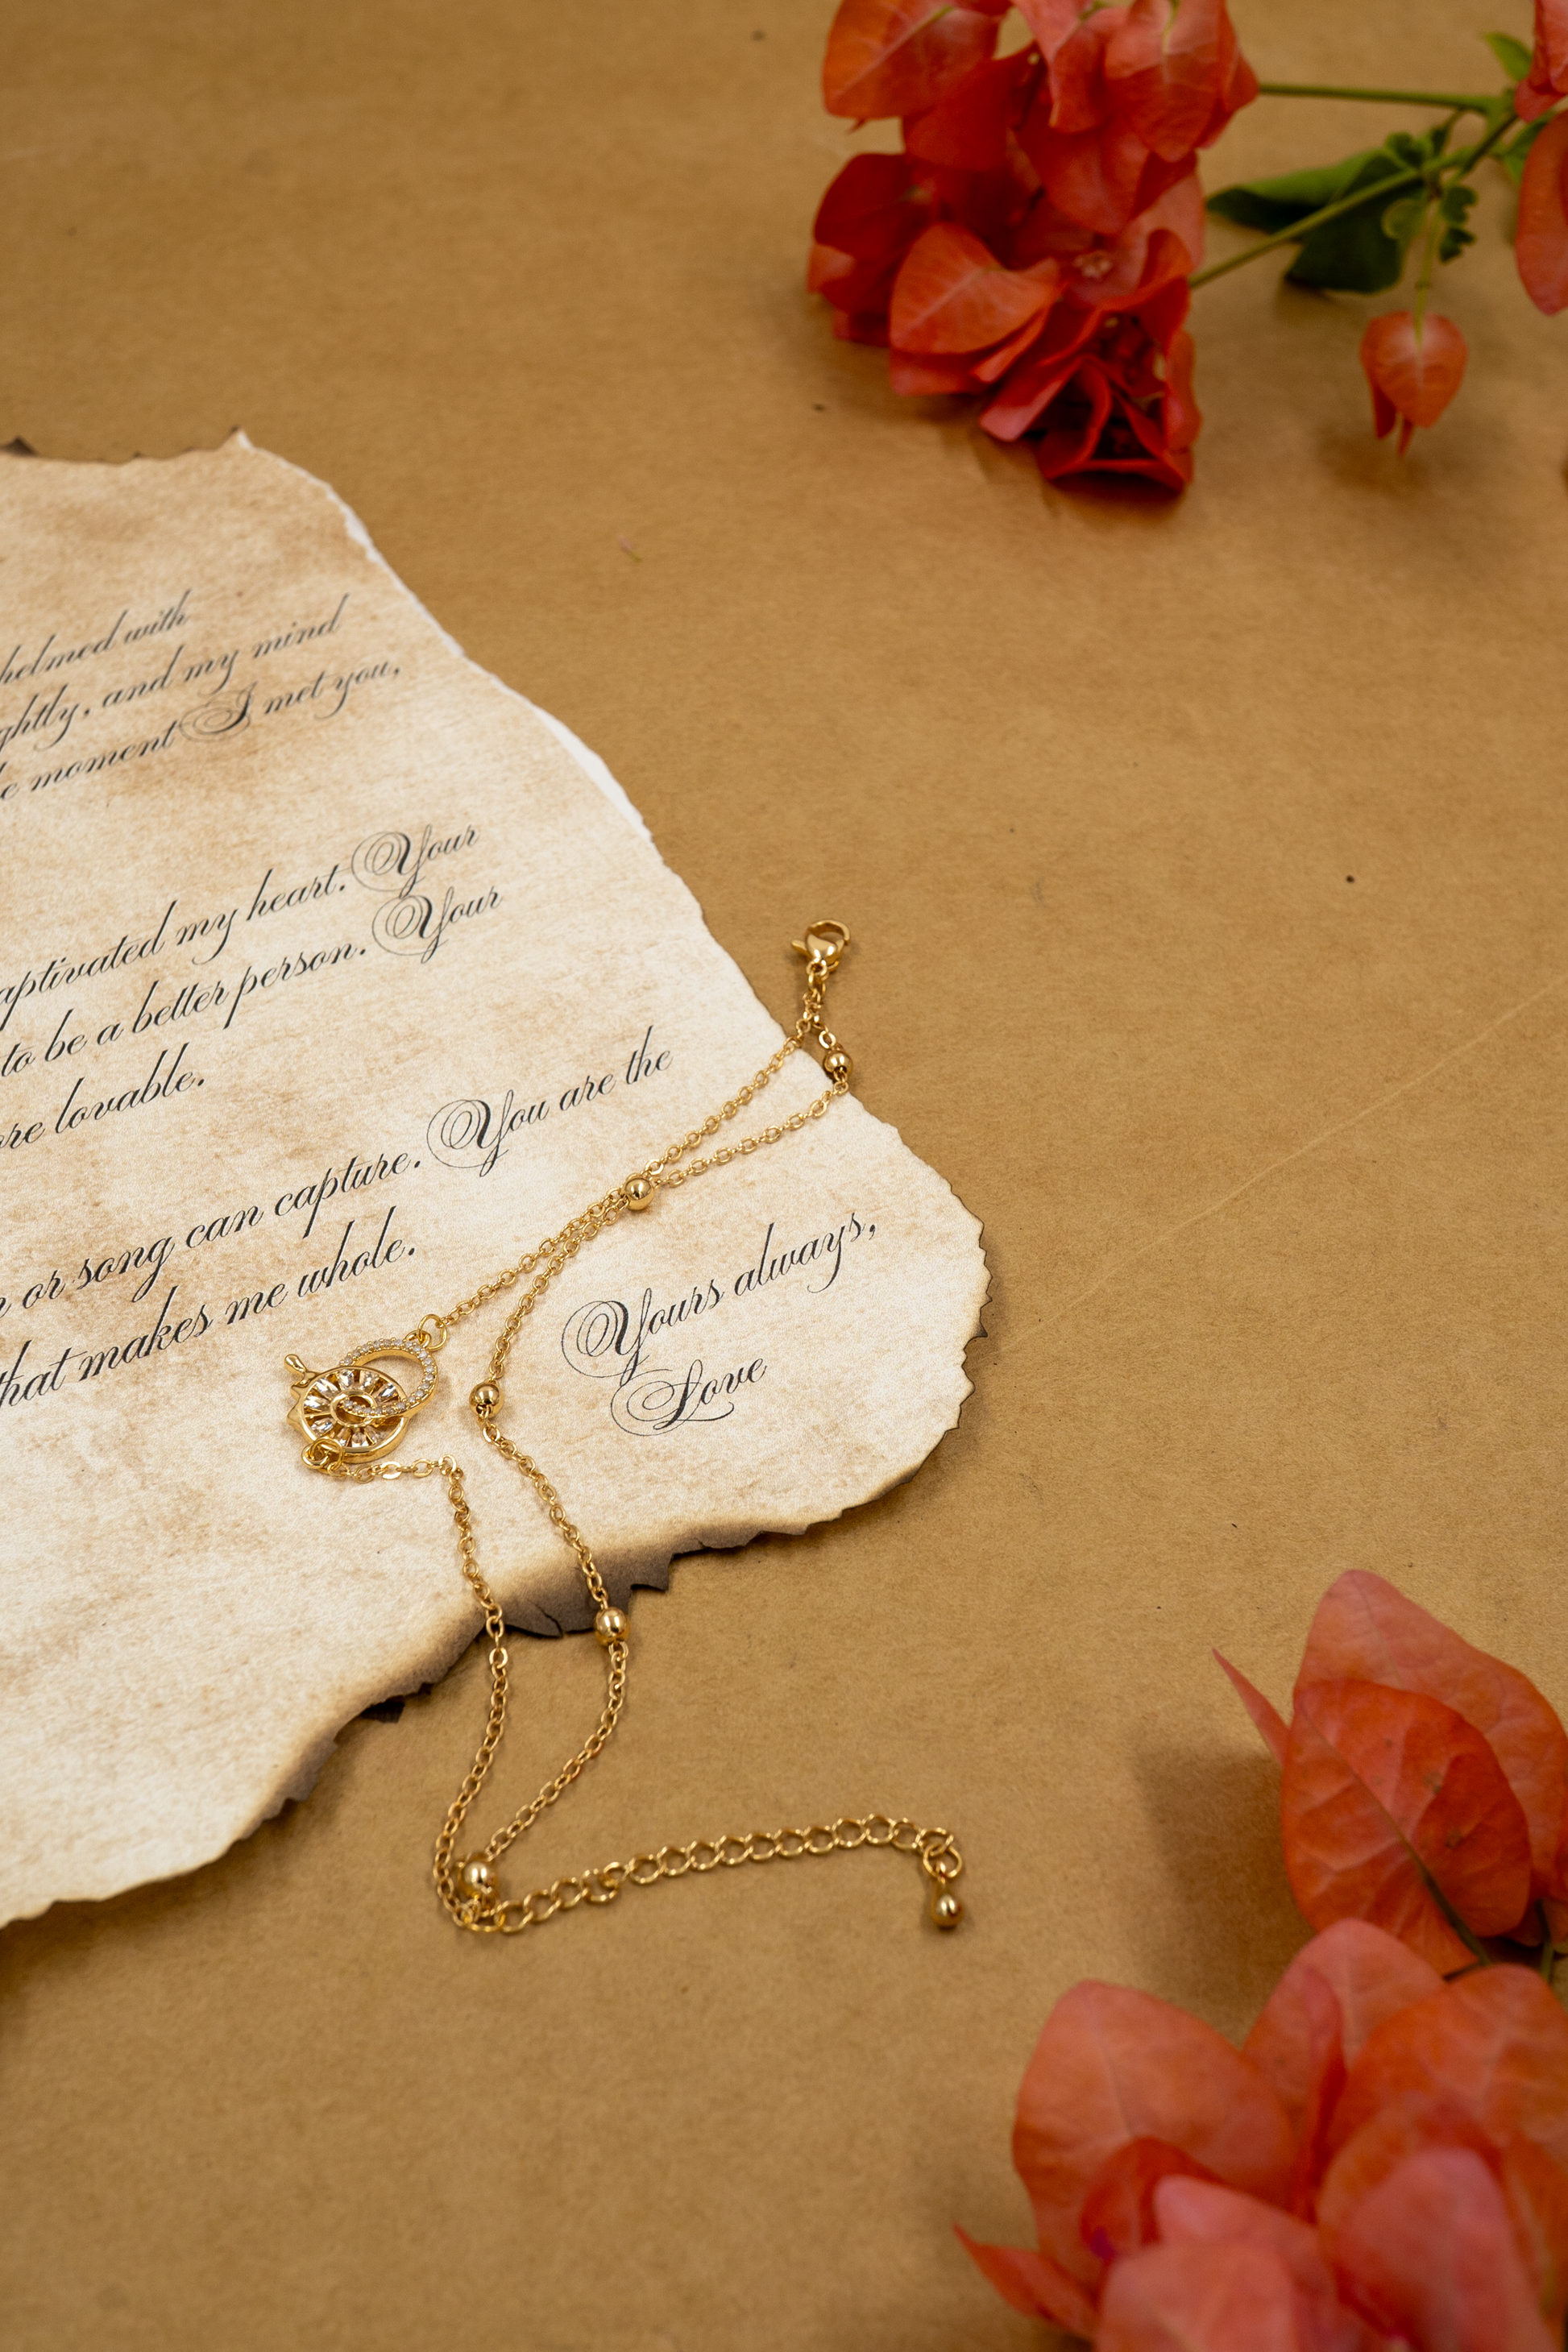 with
and my mind
moment I met you,
my heart. Your
to be a better person. Your
lovable.
or song can capture. You are the
that makes me whole.
Yours always,
Love